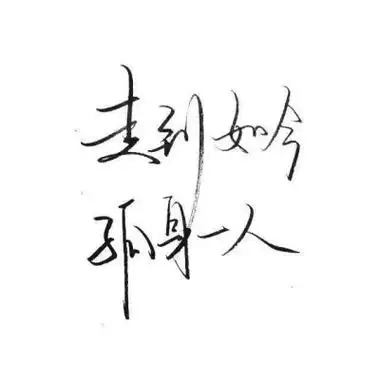 走到如今
孤身一人